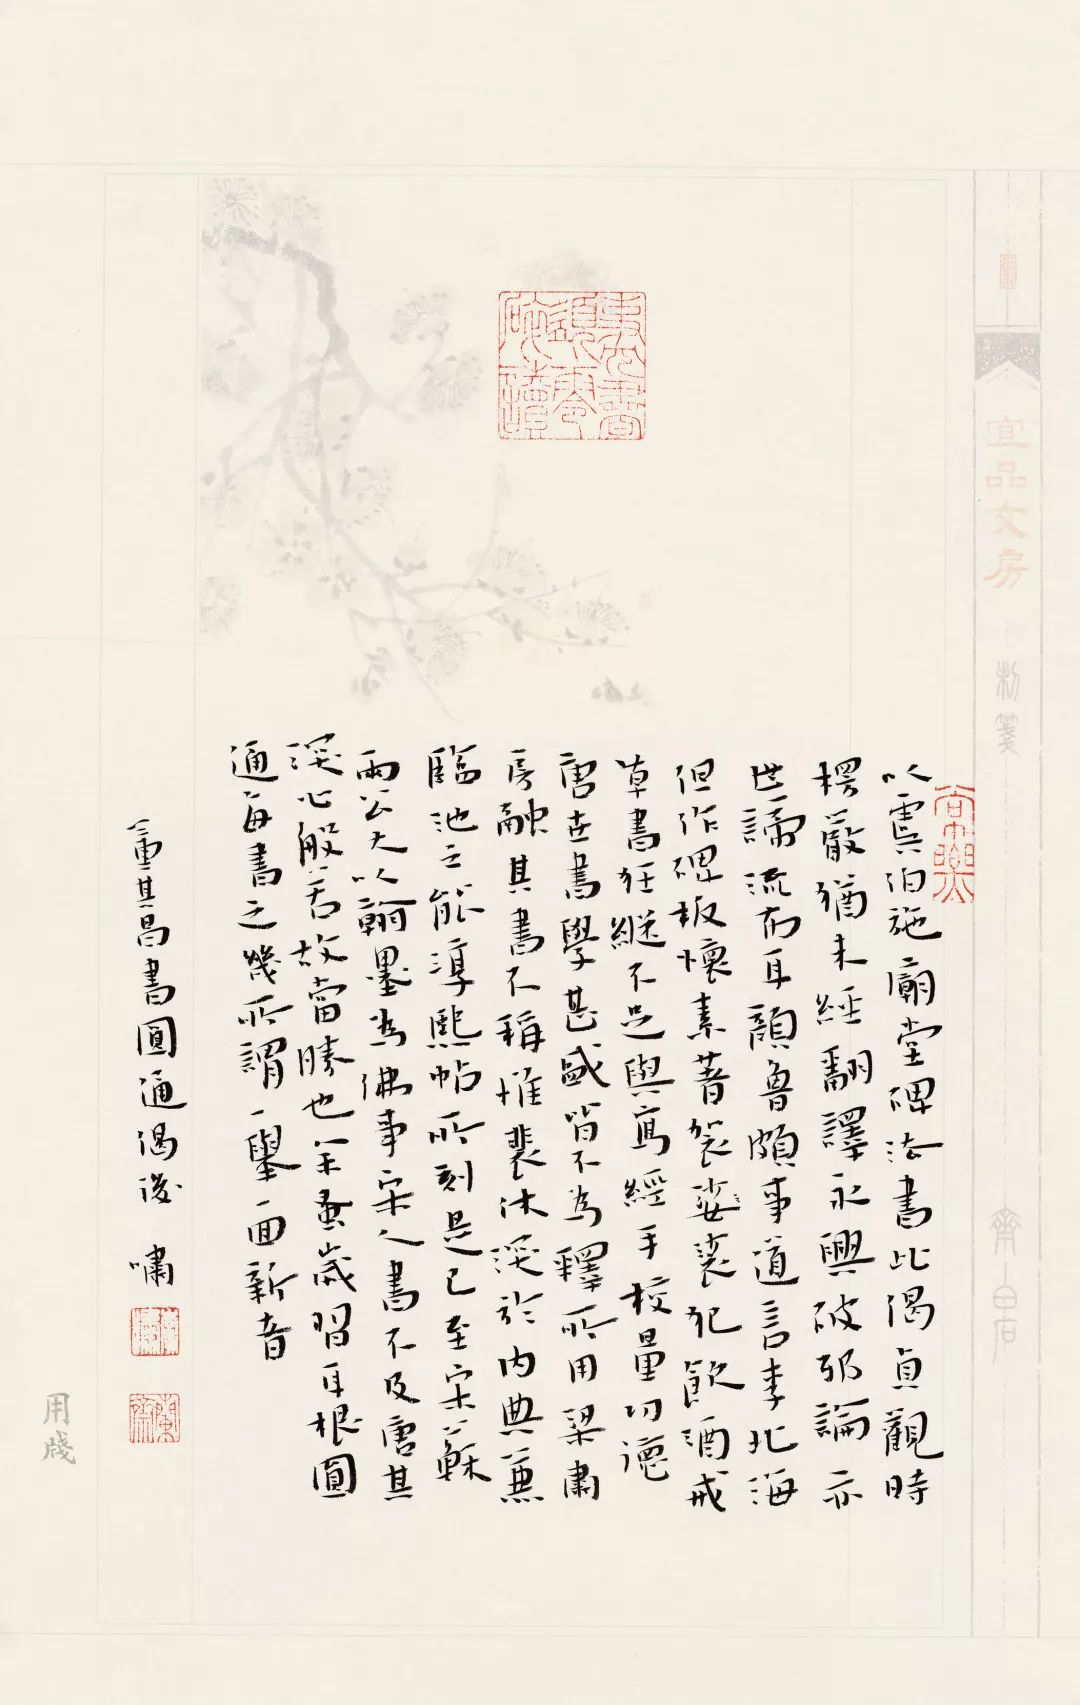 以虞伯施廟堂碑法書此偈貞觀時
楞嚴猶未經翻譯永興破邪論亦
世諦流布耳顏魯頗事道言李北海
但作碑板懷素著袈裟裟犯飲酒戒
草書狂縱不足與寫經手校量功德
唐世書學甚盛皆不為釋所用梁肅
房融其書不稱惟裴休深於內典兼
臨池之能淳熙帖所刻是已至宋蘇
兩公大以翰墨為佛事宋人書不及唐其
深心般若故當勝也余蚤歲習耳根圓
通每書之幾所謂一舉一面新音
董其昌書圓通偈後 嘯
宜品文房
制箋
齊白石
用牋